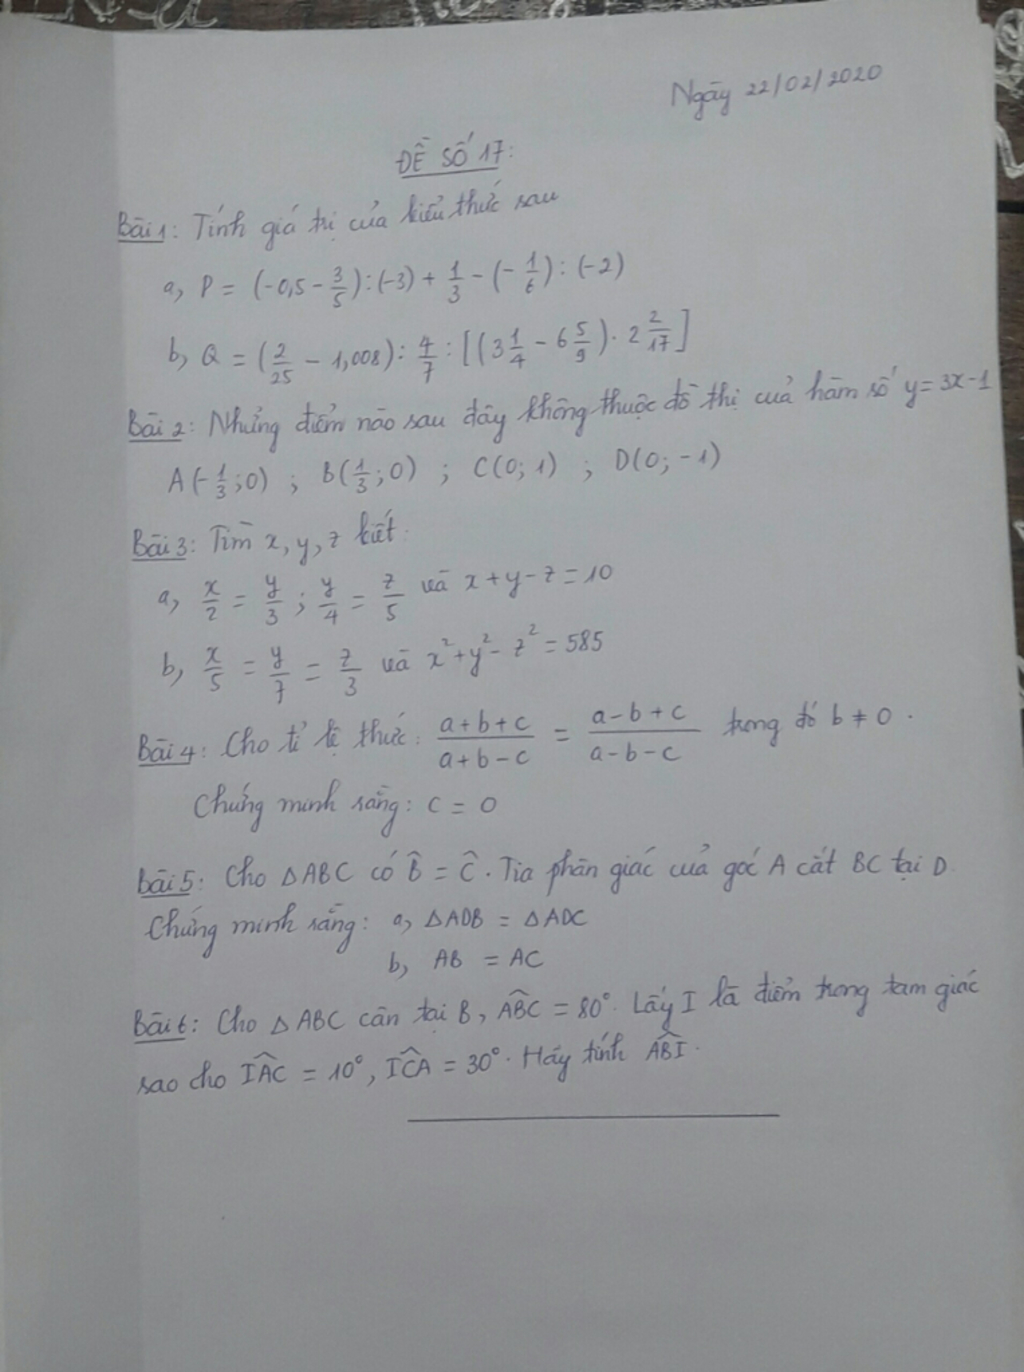 Ngày 22/02/2020
ĐỀ SỐ 17:
Bài 1: Tính giá trị của biểu thức sau
a, P = (-0,5 - 3/5) : (-3) + 1/3 - (-1/6) : (-2)
b, Q = (2/25 - 1,008) : 4/7 : [(3 1/4 - 6 5/9) . 2 2/17]
Bài 2: Những điểm nào sau đây không thuộc đồ thị của hàm số y = 3x - 1
A(-1/3; 0) ; B(1/3; 0) ; C(0; 1) ; D(0; -1)
Bài 3: Tìm x, y, z biết:
a, x/2 = y/3 ; y/4 = z/5 và x + y - z = 10
b, x/5 = y/7 = z/3 và x² + y² - z² = 585
Bài 4: Cho tỉ lệ thức: (a+b+c)/(a+b-c) = (a-b+c)/(a-b-c) trong đó b ≠ 0.
Chứng minh rằng: c = 0
Bài 5: Cho ΔABC có B̂ = Ĉ. Tia phân giác của góc A cắt BC tại D.
Chứng minh rằng: a, ΔADB = ΔADC
b, AB = AC
Bài 6: Cho ΔABC cân tại B, ABC̑ = 80°. Lấy I là điểm trong tam giác
sao cho IAC̑ = 10°, ICȂ = 30°. Hãy tính ABȊ.